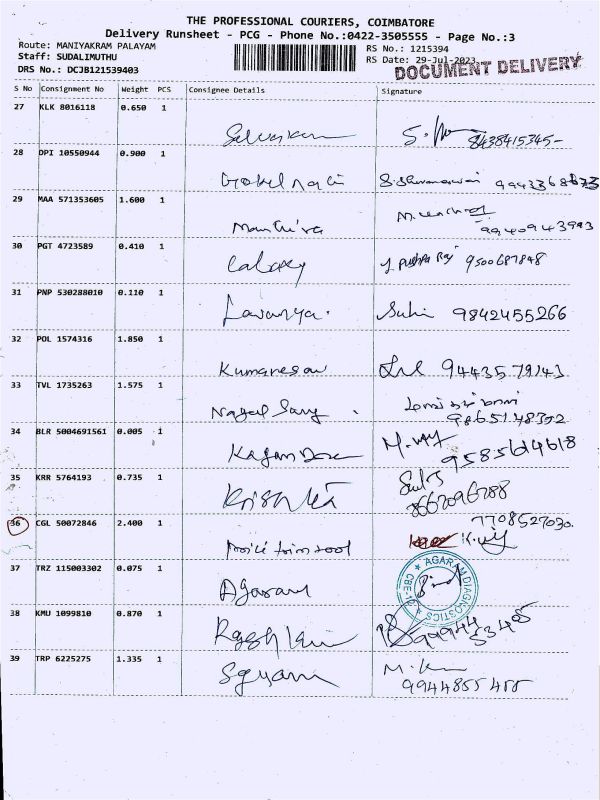 THE PROFESSIONAL COURIERS, COIMBATORE
Delivery Runsheet - PCG - Phone No.:0422-3505555 - Page No.:3
Route: MANIYAKRAM PALAYAM
RS No.: 1215394
Staff: SUDALIMUTHU
RS Date: 29-Jul-2023
DRS No.: DCJB121539403
DOCUMENT DELIVERY
S No Consignment No Weight PCS Consignee Details Signature
27 KLK 8016118 0.650 1
Selvakum 8438415345-
28 DPI 10550944 0.900 1
29 MAA 571353605 1.600 1
9940943943
30 PGT 4723589 0.410 1
Calaxy J pushpa Raj 9500687848
31 PNP 530288010 0.110 1
Lavanya. Suhi 9842455266
32 POL 1574316 1.850 1
Kumaresan 9443579143
33 TVL 1735263 1.575 1
Nagal Sany
9865148372
34 BLR 5004691561 0.005 1
9585614618
35 KRR 5764193 0.735 1
Krishna
36 CGL 50072846 2.400 1
7708527030
K.vij
37 TRZ 115003302 0.075 1
Agaram
AGARAM DIAGNOSTICS
CBE-
38 KMU 1099810 0.870 1
99944
53405
39 TRP 6225275 1.335 1
M.K
9944855455